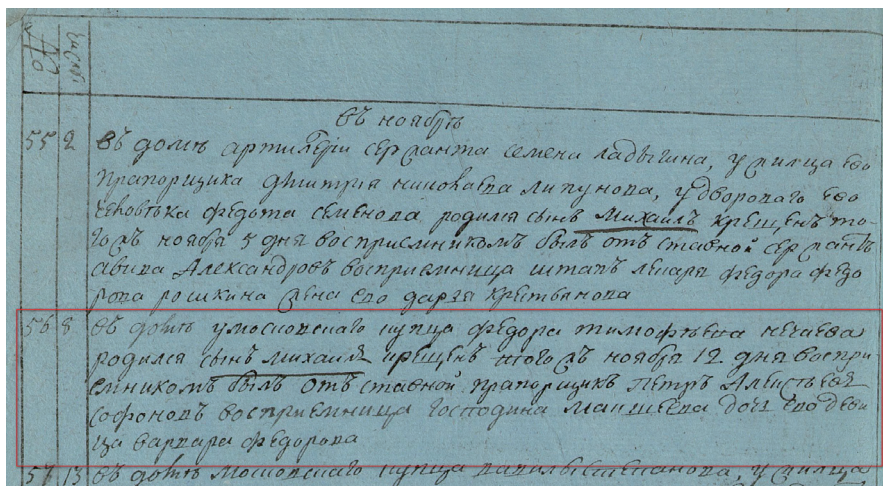 No числа
въ ноябрѣ
55 2 въ домѣ артилери сержанта семена ладыгина, у жилца ево
прапорщика дмитрия николаева липунова, у дворового ево
человѣка федота семенова родился сынъ Михаилъ крещенъ то-
гожъ ноября 5 дня восприемникомъ былъ отъставной сержантъ
Александровъ восприемница штапъ лекаря федора федо
рова рошкина жена ево дарья
56 8 въ домѣ у московскаго купца федора тимофѣева нечаева
родился сынъ михаилъ крещенъ тогожъ ноября 12 дня воспри
емникомъ былъ отъставной прапорщикъ Петръ Алексѣевъ
софоновъ восприемница господина маншева дочь ево деви
ца варвара федорова
57 13 въ домѣ московскаго купца степанова, у жилца